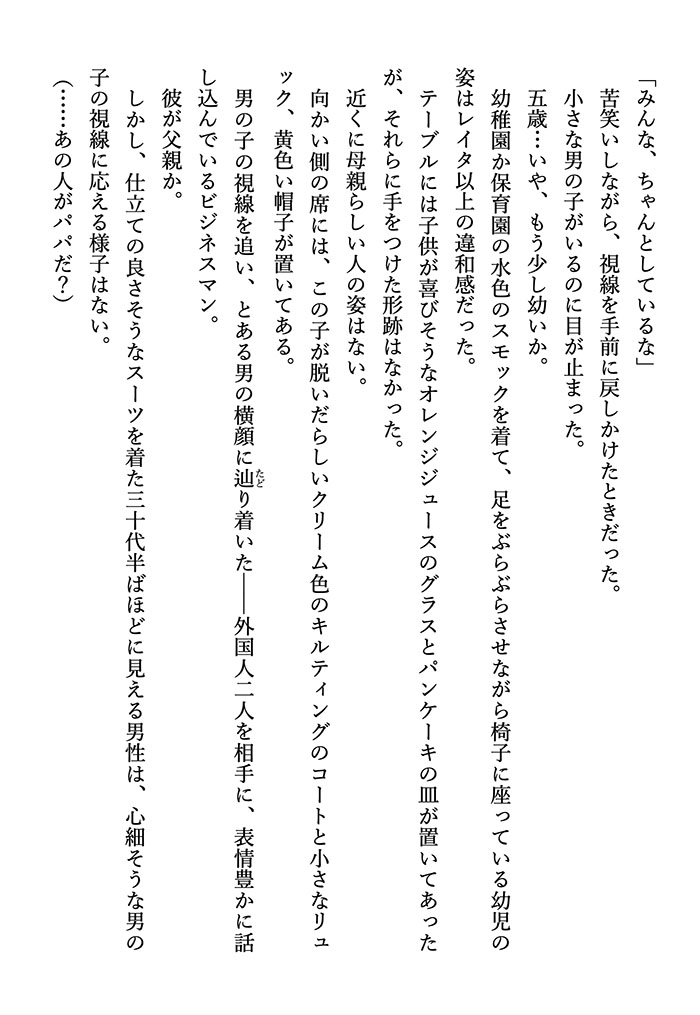 「みんな、ちゃんとしているな」
苦笑いしながら、視線を手前に戻しかけたときだった。
小さな男の子がいるのに目が止まった。
五歳…いや、もう少し幼いか。
幼稚園か保育園の水色のスモックを着て、足をぶらぶらさせながら椅子に座っている幼児の
姿はレイタ以上の違和感だった。
テーブルには子供が喜びそうなオレンジジュースのグラスとパンケーキの皿が置いてあった
が、それらに手をつけた形跡はなかった。
近くに母親らしい人の姿はない。
向かい側の席には、この子が脱いだらしいクリーム色のキルティングのコートと小さなリュ
ック、黄色い帽子が置いてある。
男の子の視線を追い、とある男の横顔に辿り着いた――外国人二人を相手に、表情豊かに話
し込んでいるビジネスマン。
彼が父親か。
しかし、仕立ての良さそうなスーツを着た三十代半ばほどに見える男性は、心細そうな男の
子の視線に応える様子はない。
(……あの人がパパだ？)